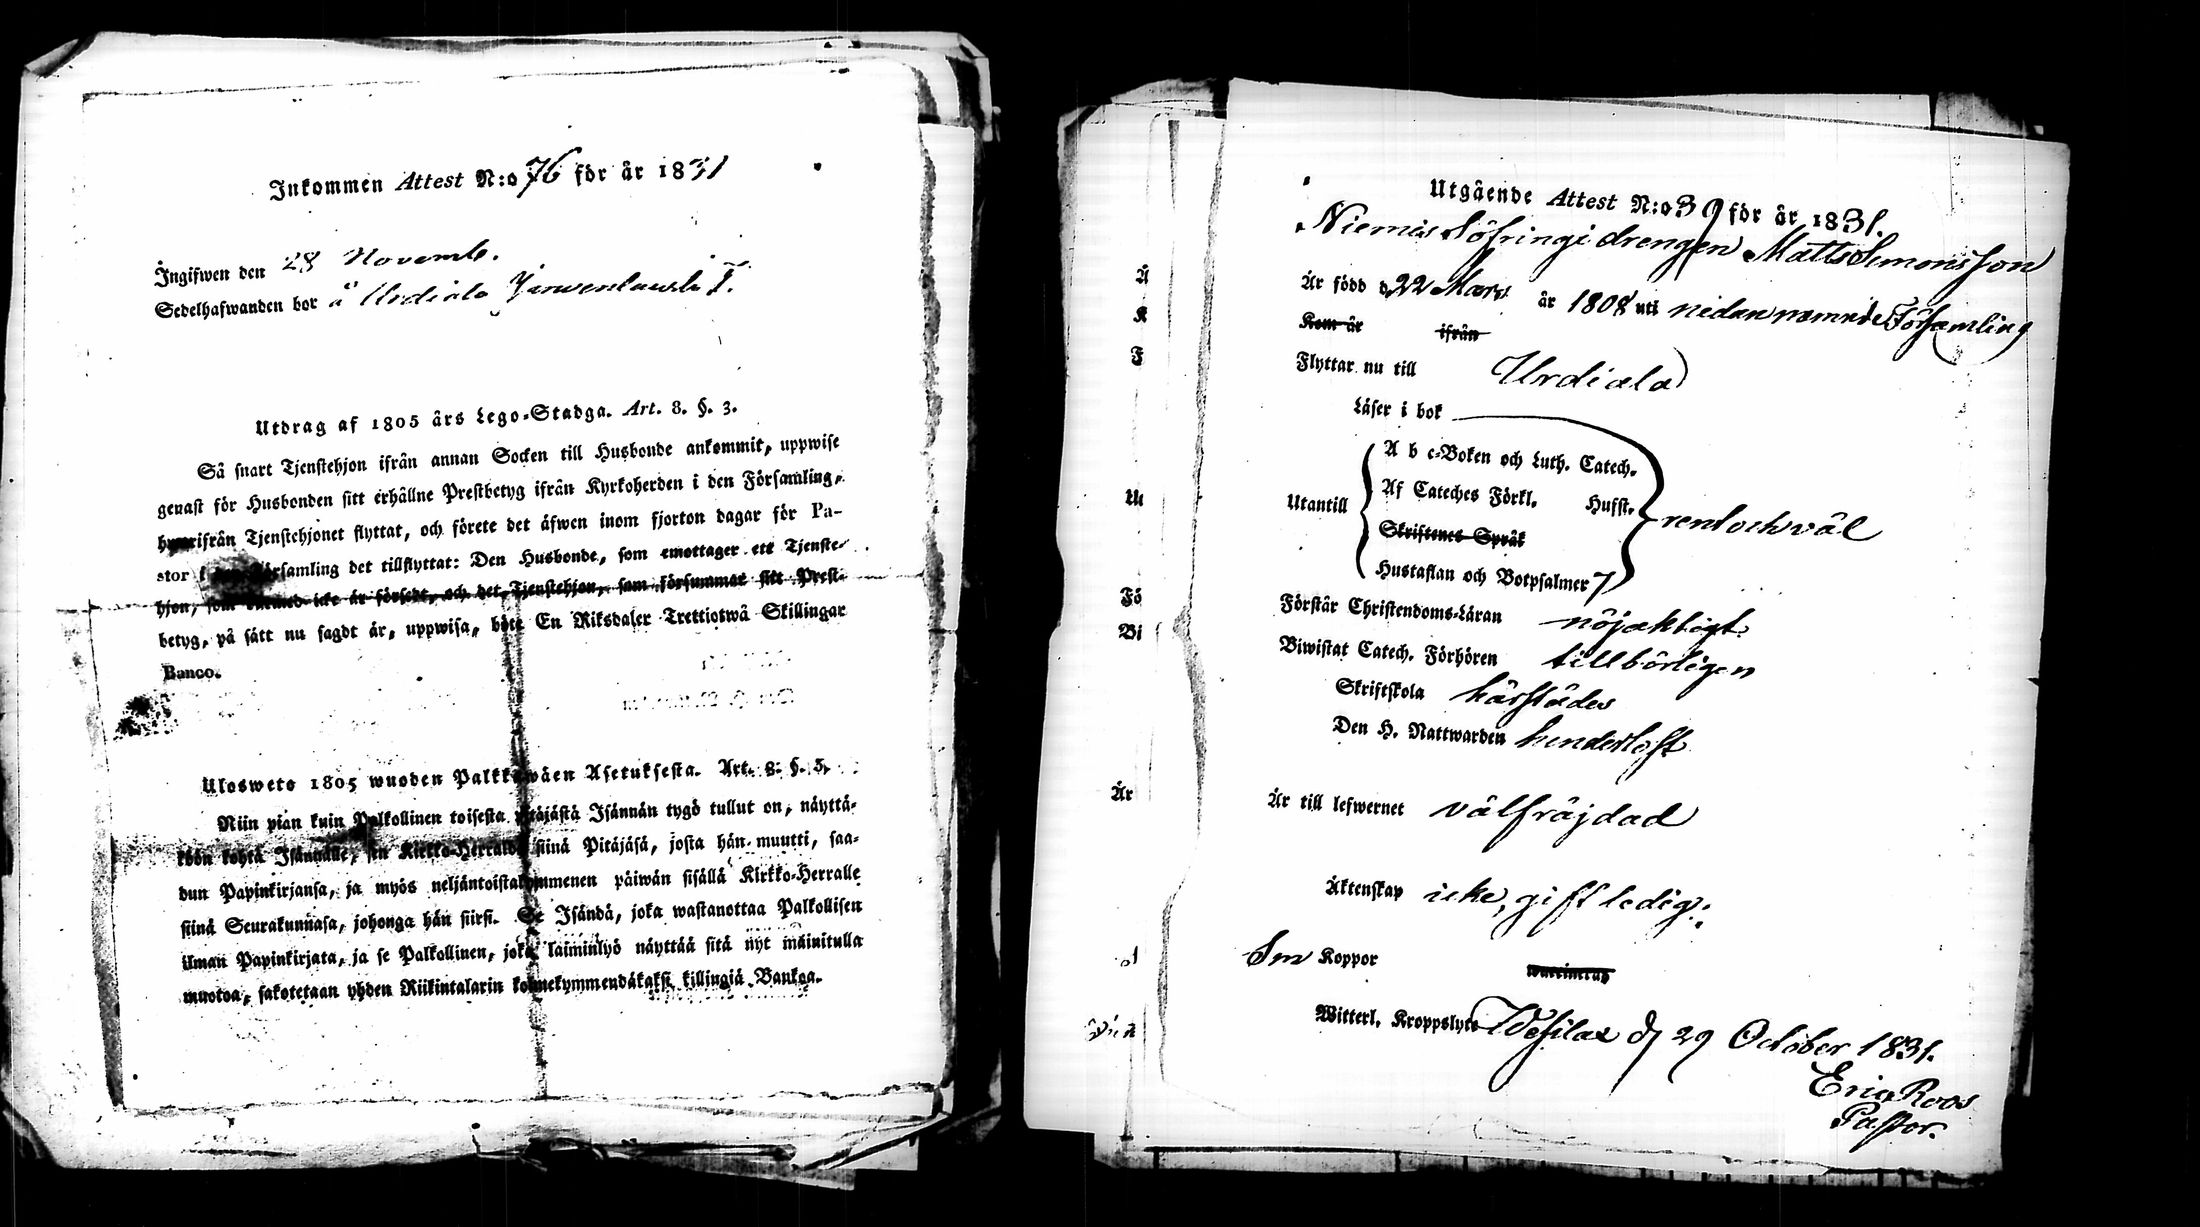 Inkommen Attest N:o 76 för år 1831
Ingifwen den 28 Novemb.
Sedelhafwanden bor å Urdiala
Utdrag af 1805 års Lego-Stadga. Art. 8. §. 3.
Så snart Tjenstehjon ifrån annan Socken till Husbonde ankommit, uppwise
genast för Husbonden sitt erhållne Prestbetyg ifrån Kyrkoherden i den Församling,
hwarifrån Tjenstehjonet flyttat, och förete det äfwen inom fjorton dagar för Pa-
stor i den Församling det tillflyttat: Den Husbonde, som emottager ett Tjenste-
hjon, som dermed icke är försedt, och det Tjenstehjon, som försummar sitt Prest-
betyg, på sätt nu sagdt är, uppwisa, böte En Riksdaler Trettiotwå Skillingar
Banco.
Ulosweto 1805 wuoden Palkkawäen Asetuksesta. Art. 8. §. 3.
Niin pian kuin Palkollinen toisesta pitäjästä Isännän tygö tullut on, näyttä-
köön kohta Isännälle, sen Kirkko-Herralda siinä Pitäjäsä, josta hän muutti, saa-
dun Papinkirjansa, ja myös neljäntoistakymmenen päiwän sisällä Kirkko-Herralle
siinä Seurakunnasa, johonga hän siirsi. Se Isändä, joka wastanottaa Palkollisen
ilman Papinkirjata, ja se Palkollinen, joka laiminlyö näyttää sitä nyt mainitulla
muotoa, sakotetaan yhden Riikintalarin kolmekymmendäkaksi killingiä Bankoa.
Utgående Attest N:o 39 för år 1831.
Niemis Söfringi drengen Matts Simonsson
Är född d. 22 Mars år 1808 uti nedannämnde Församling
Kom år ifrån
Flyttar nu till Urdiala
Läser i bok
Utantill
A b c-Boken och Luth. Catech.
Af Cateches Förkl. Hufst.
Skriftenes Språk
Hustaflan och Botpsalmer 7
rent och väl
Förstår Christendoms-Läran nöjaktigt
Biwistat Catech. Förhören tillbörligen
Skriftskola härstädes
Den H. Nattwarden
Är till lefwernet välfräjdad
Äktenskap icke, gift ledig.
Koppor
Witterl. Kroppslyte
Wesilax d 29 October 1831.
Eric Roos
Pastor.
Ä
K
F
Ut
Fö
Bi
Är